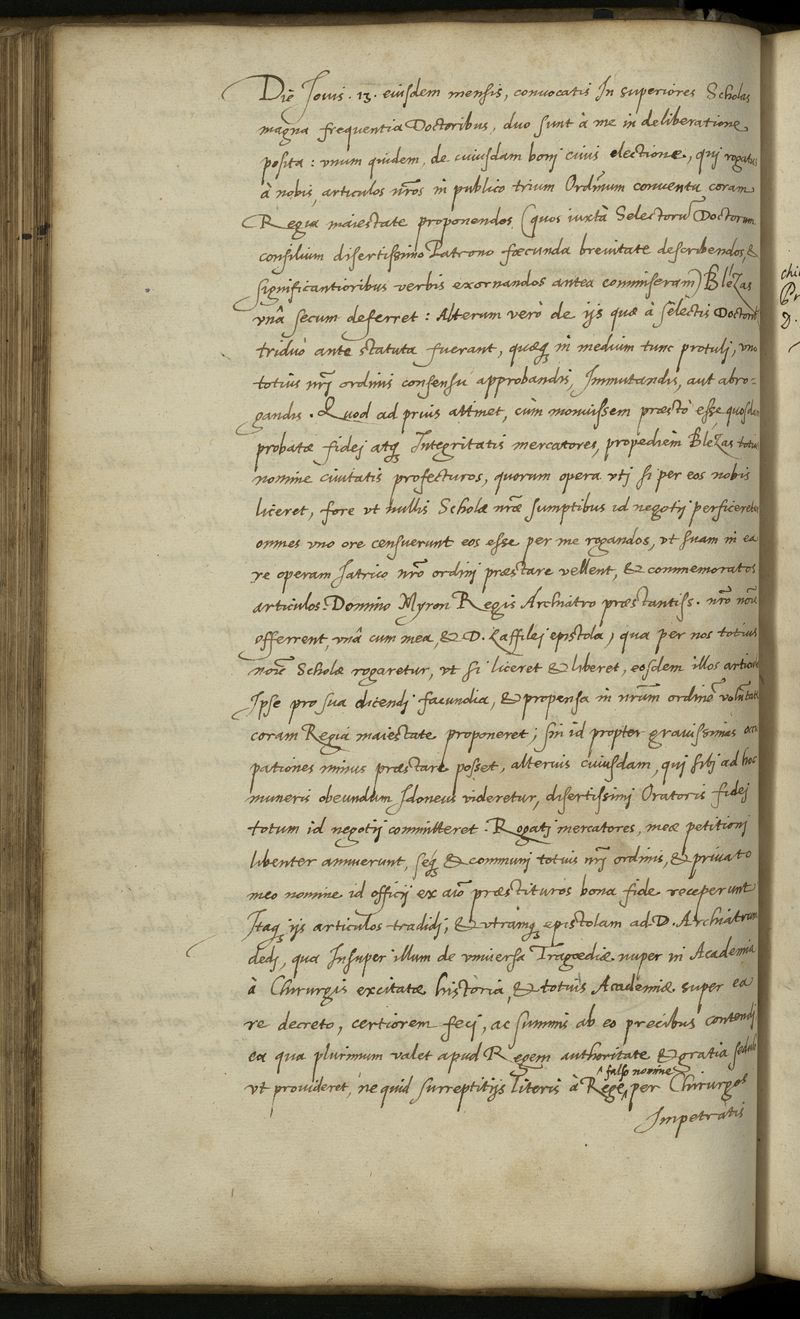 Die Jouis . 13 . eiusdem mensis, conuocatis In superiores Scholas
magna frequentia Doctoribus, duo sunt à me in deliberatione
posita : vnum quidem, de cuiusdam bonj ciuis electione, quj rogatus
à nobis, articulos nr̃os in publico trium Ordinum conuentu coram
Regia maiestate proponendos (quos iuxtà Selectorũ Doctorum
consilium disertissimo Patrono fæcunda breuitate describendos, &
significantioribus verbis exornandos antea commiseram) Blezas
vnâ secum deferret : Alterum verò de ijs quæ à selectis Doctorib
triduò ante statuta fuerant, quæq́ in medium tunc protulj, vno
totius nrj̃ ordinis consensu approbandis, Immutandis, aut abro-
gandis . Quod ad prius attinet, cùm monuissem præstò esse quosdam
probatæ fidej atq́ Integritatis mercatores, propediem Blezas totius
nomine ciuitatis profecturos, quorum opera vtj si per eos nobis
liceret, fore vt nullis Scholæ nr̃æ sumptibus id negotij perficeretur
omnes vno ore censuerunt eos esse per me rogandos, vt suam in ea
re operam Iatrico nr̃o ordinj præstare vellent, & commemoratos
articulos Domino Myron Regis Archiatro præstantiss. nr̃o noĩe
offerrent, vnâ cum mea, & D. Laffilej epistola, qua per nos totius
noĩe Scholæ rogaretur, vt si liceret & liberet, eosdem illos articulos
Ipse pro sua dicendj facundia, & propensa in nr̃um ordinẽ volũtate
coram Regia maiestate proponeret ; sin id propter grauissimas occu
pationes minus præstare posset, alterius cuiusdam, quj sibj ad hoc
muneris obeundum Idoneus videretur, disertissimj Oratoris fidej
totum id negotij committeret . Rogatj mercatores, meæ petitionj
libenter annuerunt, seq́ & communj totius nrj̃ ordinis, & priuato
meo nomine id officij ex aĩo præstituros bona fide receperunt
Itaq́ ijs articulos tradidj, & vtramq́ epistolam ad D. Archiatrum
dedj, qua Insuper illum de vniuersa Tragœdiæ nuper in Academia
à Chirurgis excitatæ historia, & totius Academiæ super ea
re decreto, certiorem fecj, ac summis ab eo precibus contendj
ea qua plurimum valet apud Regem authoritate & gratia sedulò
vt prouideret, ne quid surreptitijs literis à Rege ^falso nomine^ per Chirurgos
Impetratis